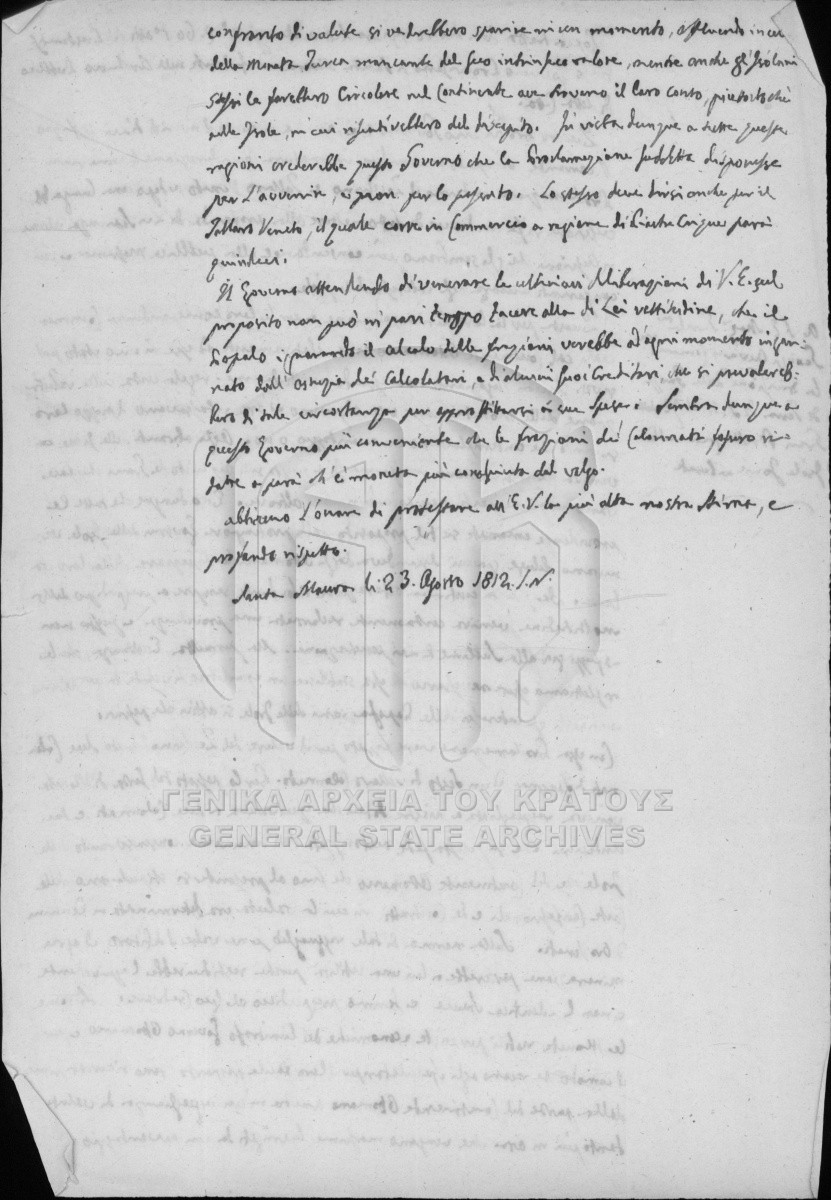 confronto di valute si vedrebbero sparire in un momento, affluendo in cui
della Moneta Turca mancante del suo intrinseco valore, mentre anche gl'Isolani
stessi la farebbero Circolare nel Continente ove trovano il loro conto, piuttosto che
nelle Isole, in cui risentirebbero del discapito. In vista dunque a tutte queste
ragioni crederebbe questo Governo che la Proclamazione suddetta disponesse
per l'avvenire, e non per lo passato. Lo stesso deve dirsi anche per il
Tallaro Veneto, il quale corre in Commercio a ragione di Piastre Cinque parà
quindeci.
Il Governo attendendo di venerare le ulteriori Deliberazioni di V. E. sul
proposito non può in pari tempo tacere alla di Lei rettitudine, che il
Popolo ignorando il calcolo delle frazioni verebbe ad ogni momento ingan-
nato dall' astuzia dei Calcolatori, e di alcuni suoi Creditori, che si prevalereb-
bero di tale circostanza per approfittarsi a sue spese. Sembra dunque a
questo Governo più conveniente che le frazioni dei Colonnati fossero ri-
dotte a parà ch'è moneta più conosciuta dal volgo.
Abbiamo l'onore di protestare all'E. V. la più alta nostra stima, e
profondo rispetto.
Santa Maura li 23. Agosto 1812. S. N.
ΓΕΝΙΚΑ ΑΡΧΕΙΑ ΤΟΥ ΚΡΑΤΟΥΣ
GENERAL STATE ARCHIVES